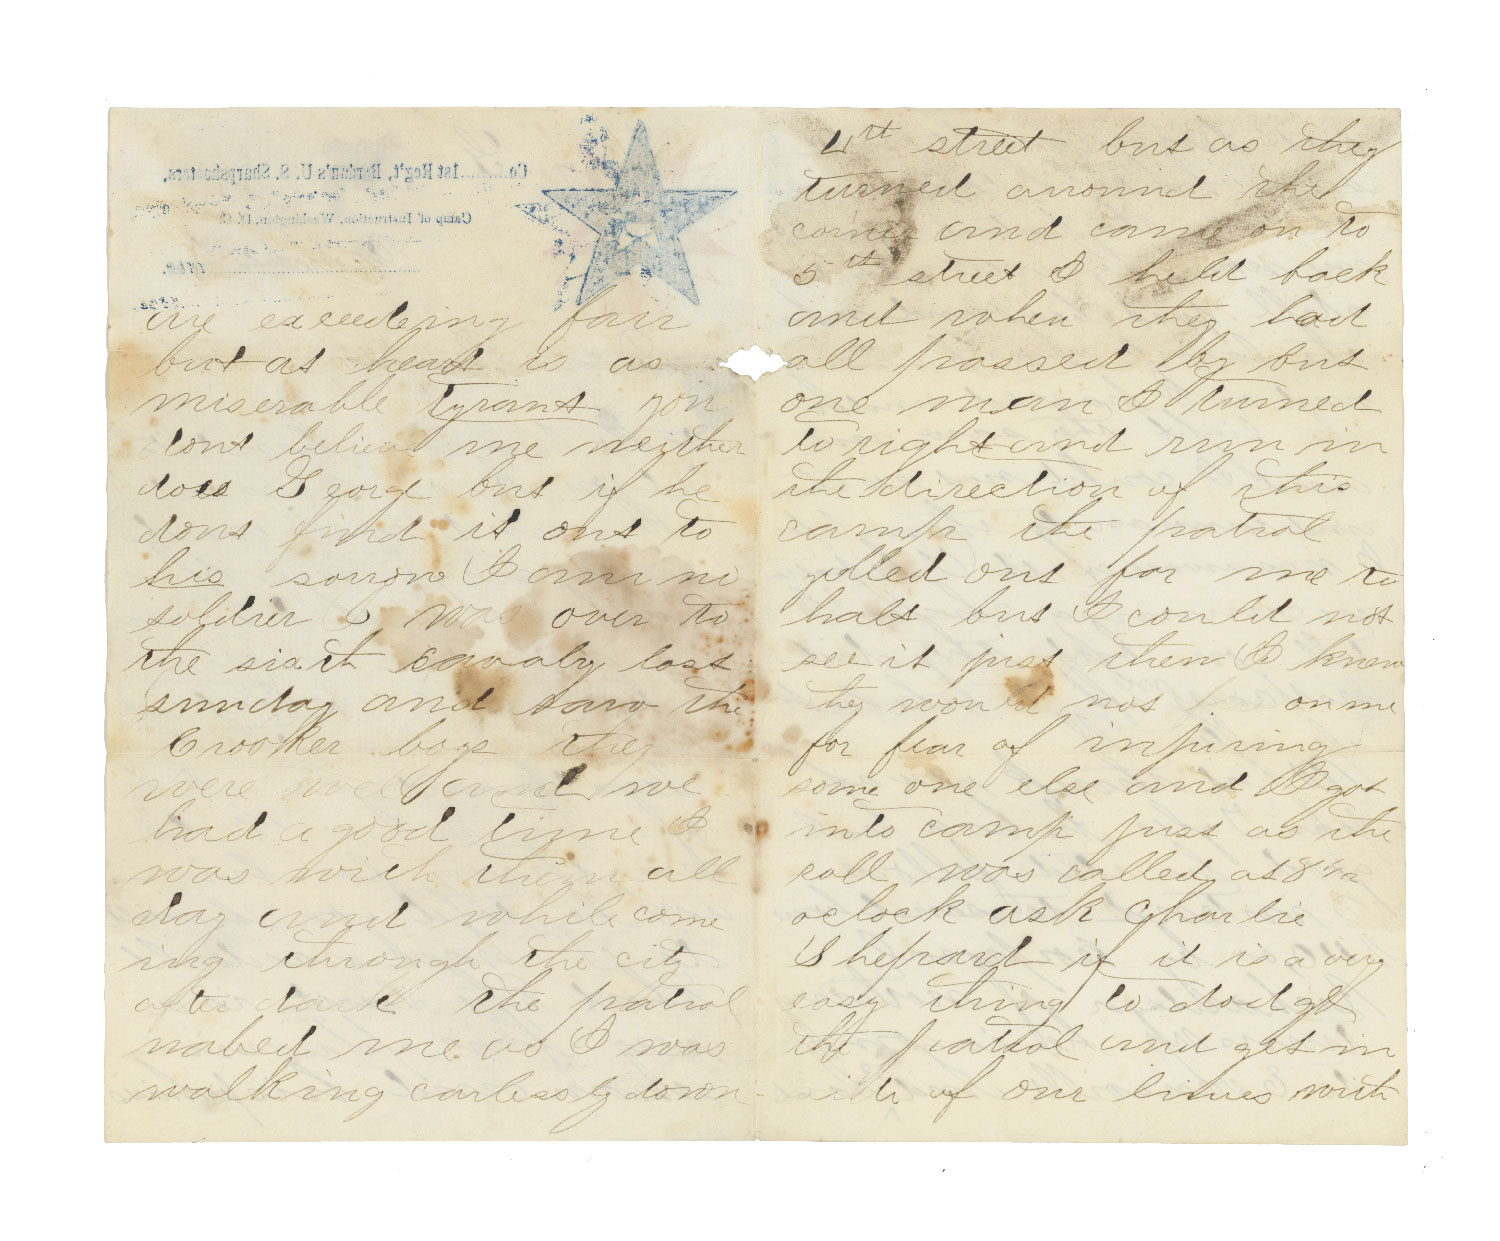 Co. 1st Reg't, Berdan's U. S. Sharpshooters,
Camp of Instruction, Washington, D. C.
186
are exceedeing fair
but at heart is as
miserable tyrants you
dont believe me neither
does George but if he
dont find it out to
his sorrow I am no
soldier I was over to
the sixt cavalry last
sunday and saw the
Crooker boys they
were well and we
had a good time I
was with them all
day and while come
ing through the city
after dark the patrol
nabed me as I was
walking carlessly down
4rt street but as they
turned arround the
corner and came on to
5th street I held back
and when they had
all passed by but
one man I turned
to right and run in
the direction of this
camp the patrol
yelled out for me to
halt but I could not
see it just then I knew
they would not on me
for fear of injuring
some one else and I got
into camp just as the
roll was called at 8 1/2
oclock ask Charlie
Shepard if it is a very
easy thing to dodge
the patrol and get in
side of our lines with